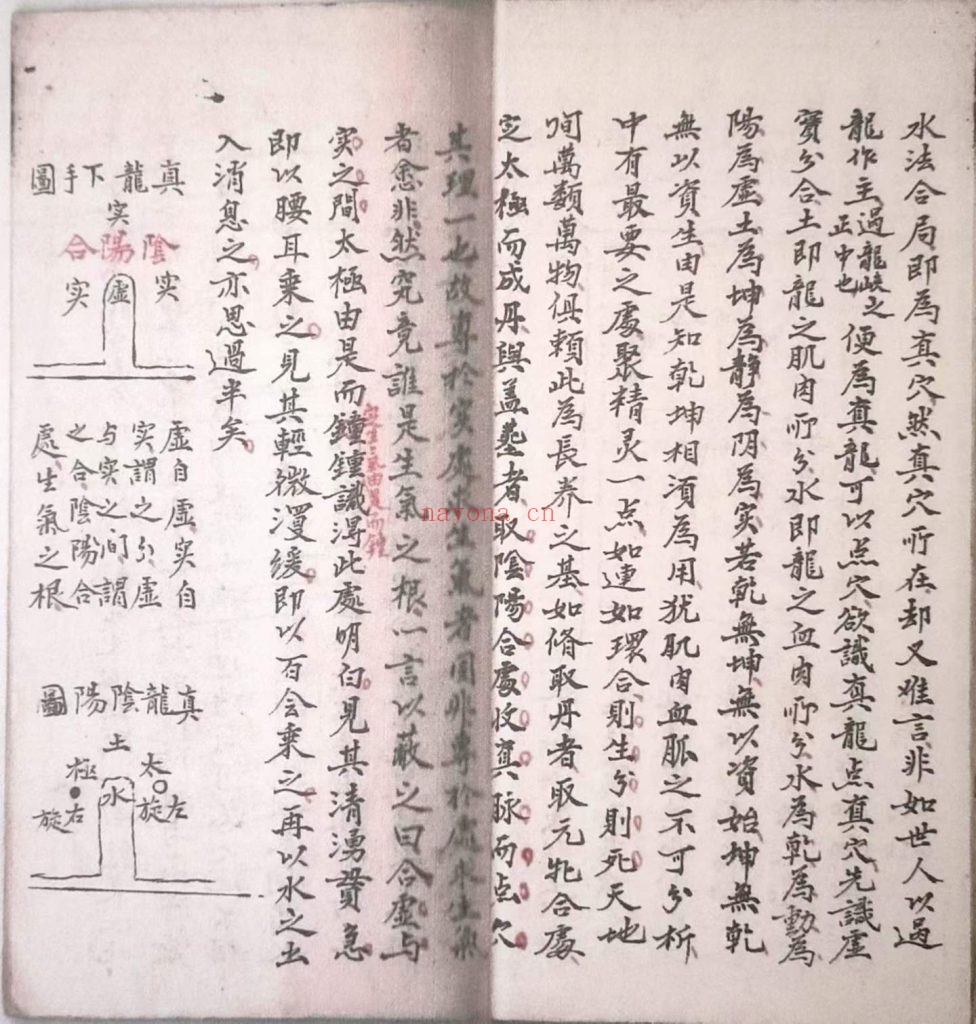 水法合局即為真穴然真穴所在却又难言非如世人以過
龍作主過龍峽之正中也便為真龍可以点穴欲識真龍点真穴先識虛
實分合土即龍之肌肉所分水即龍之血肉所分水為乾為動為
陽為虛土為坤為静為阴為实若乾無坤無以資始坤無乾
無以資生由是知乾坤相須為用犹肌肉血脈之不可分析
中有最要之處聚精灵一点如連如環合則生分則死天地
间萬類萬物俱賴此為長养之基如脩取丹者取元牝合處
定太極而成丹與盖墓者取陰陽合處收真脉而点穴
其理一也故專於实處求生氣者固非專於虛求生氣
者愈非然究竟誰是生氣之根一言以蔽之曰合虛与
实之間太極由是而鐘鐘識得此處明白見其清湧資急
即以腰耳乘之見其輕微漫緩即以百会乘之再以水之出
入消息之亦思過半矣
真龍下手圖
实
陰陽合
实 虛 实
虛自虛实自
实謂之分虛
与实之间謂
之合陰陽合
處生氣之根
真龍陰陽圖
土
太極
水
左旋
右旋
nayona.cn